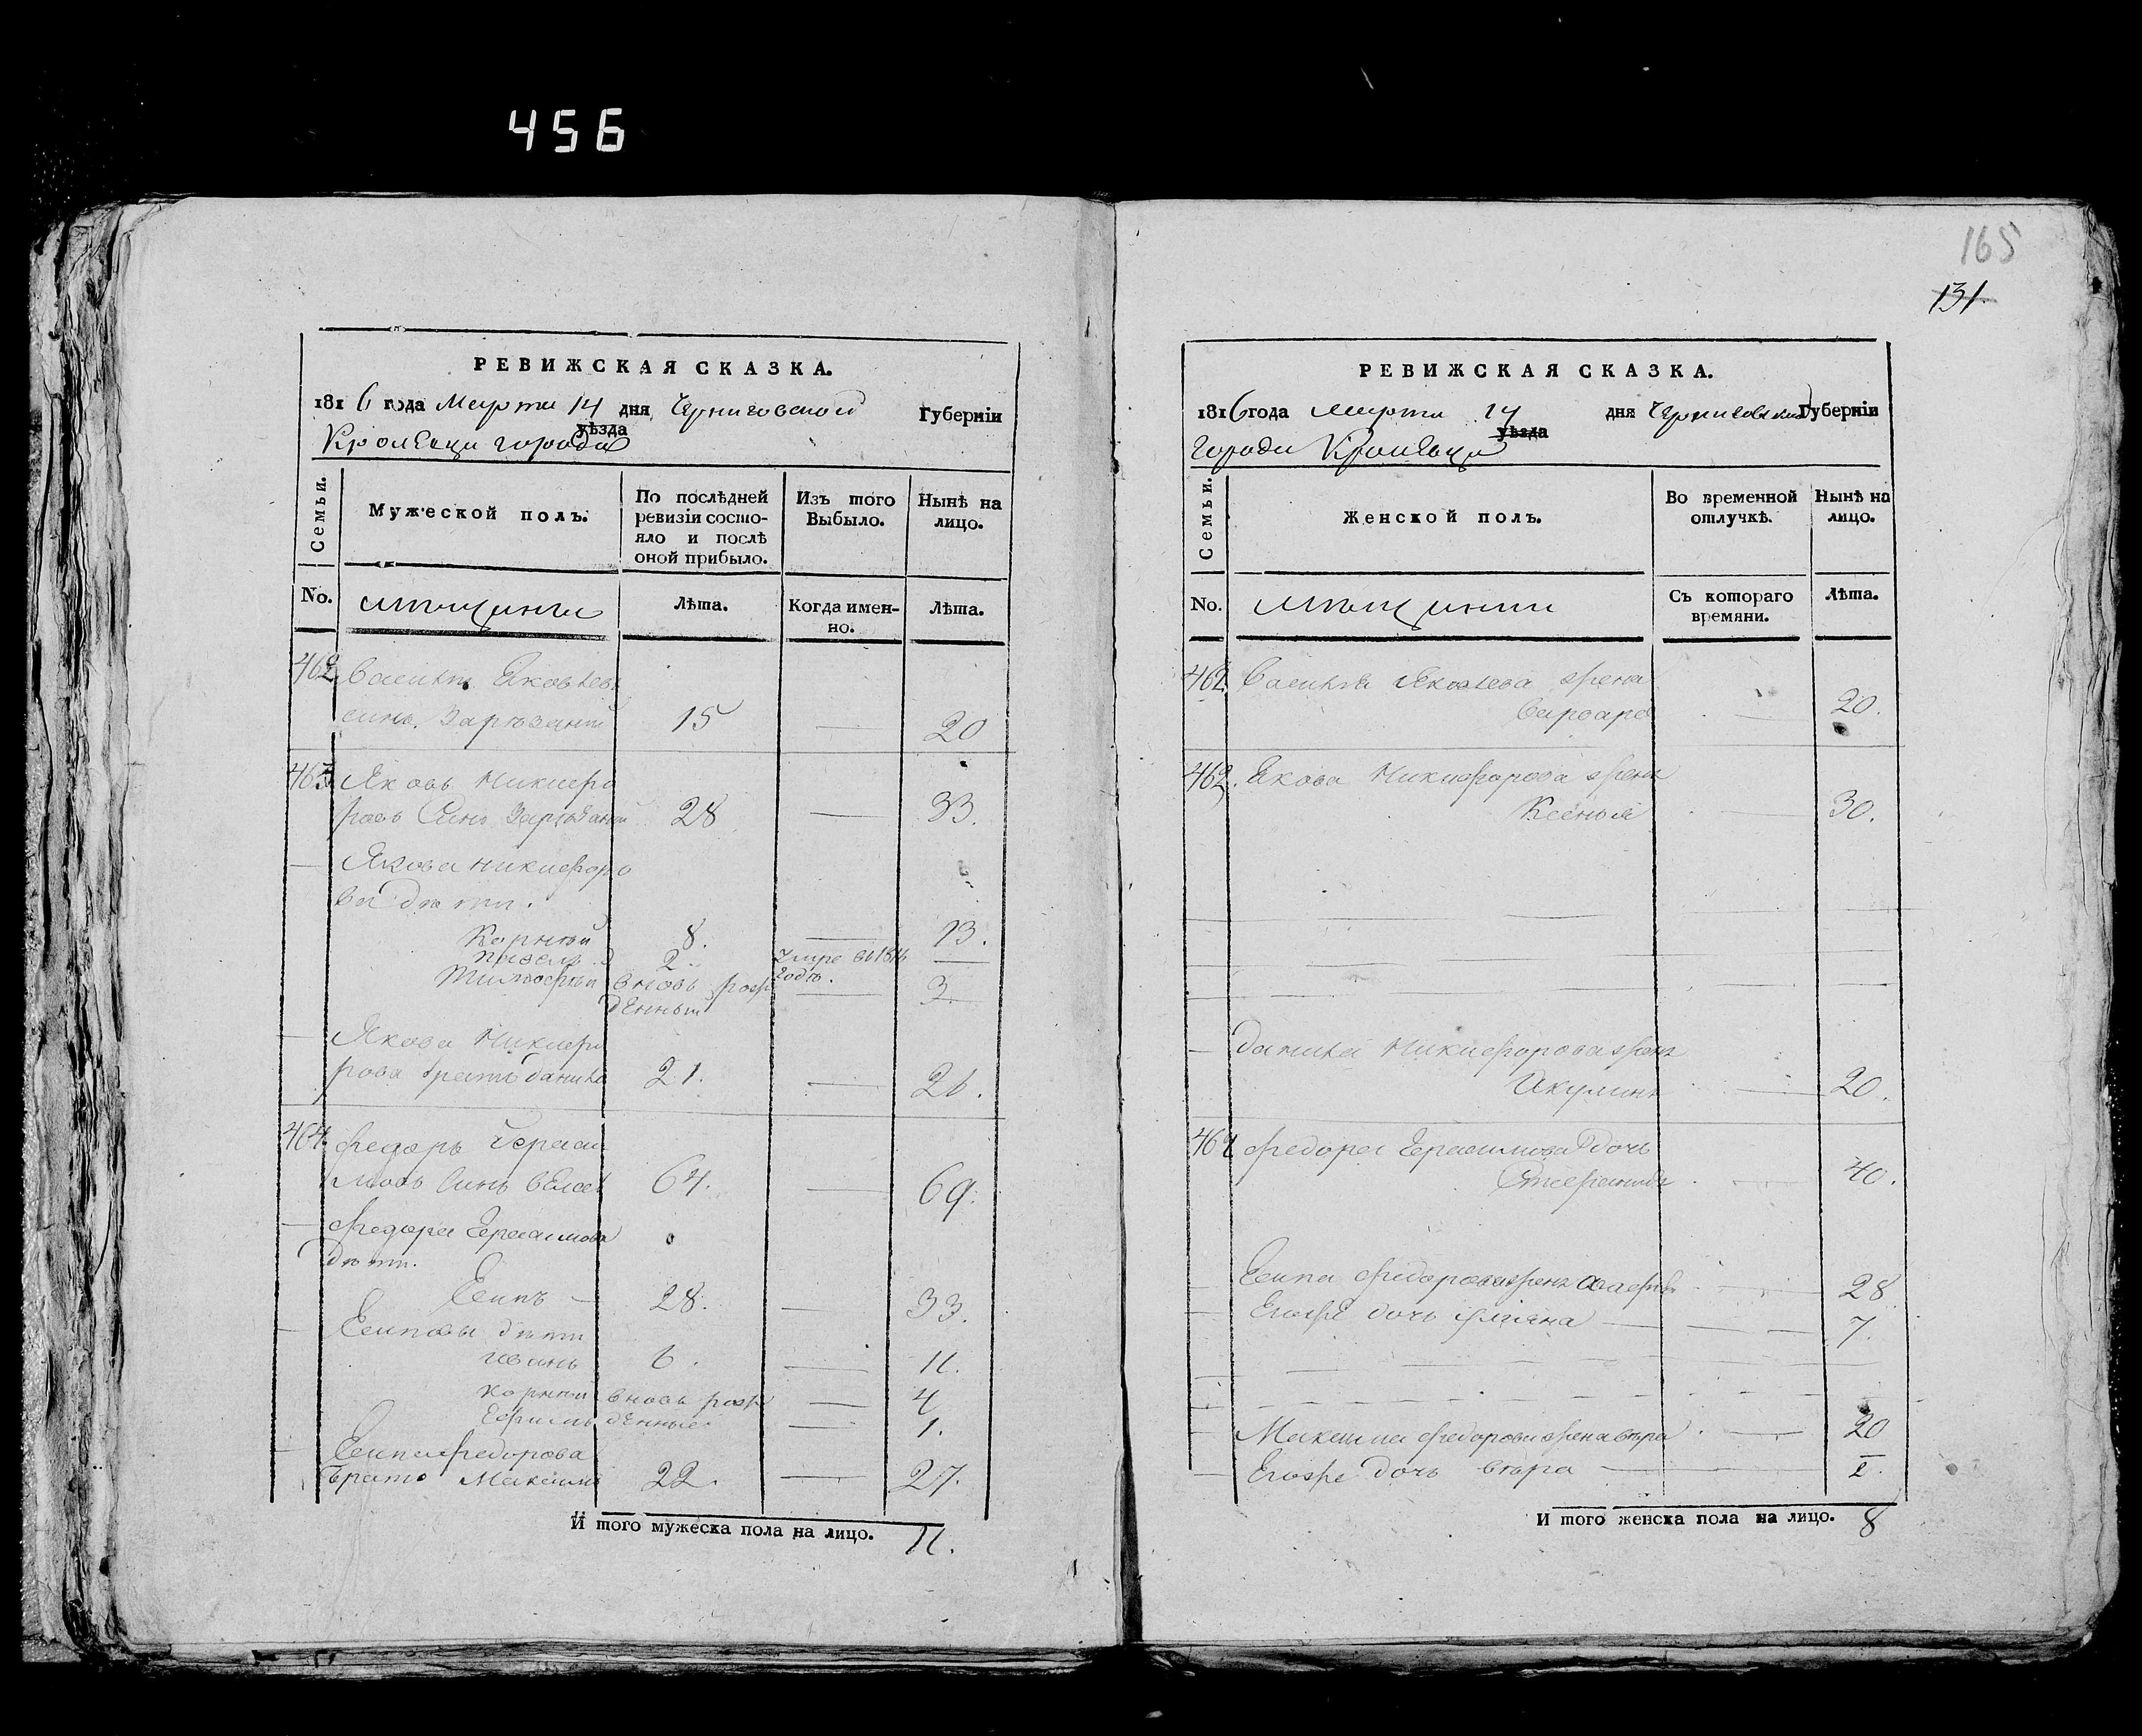 456
165
131.
РЕВИЖСКАЯ СКАЗКА.
1816 года Марта 14 дня Черниговской Губерніи
уѣзда
Кролевца города
Семьи.
Мужеской полъ.
По послѣдней ревизіи состо-
яло и послѣ оной прибыло.
Изъ того Выбыло.
Нынѣ на лицо.
No.
мещанъи
Лѣта.
Когда имен-
но.
Лѣта.
462 Василій Яковлевъ
синъ Зарѣзаній 15 — 20
463 Яковъ Никифо
ровъ Синъ Зарѣзаній 28 — 33.
— Якова Никифоро
ва дѣти.
Корнѣй 8. — 13.
Павелъ 2. умре въ 181 годѣ. —
Тимофѣй вновь рож
денный — 3.
— Якова Никифо
рова братъ Данило 21. — 26.
464. Федоръ Гераси
мовъ Синъ 64. — 69.
— Федора Герасимова
дѣти.
Есипъ — 28. — 33.
— Есиповы дѣти
иванъ 6. — 11.
Корнѣй вновь рож — 4
Ефимъ денные — 1.
— Есипа Федорова
братъ Максимъ 22. — 27.
И того мужеска пола на лицо. 11.
РЕВИЖСКАЯ СКАЗКА.
1816 года марта 14 дня Черниговской Губерніи
уѣзда
города Кролевца
Семьи.
Женской полъ.
Во временной отлучкѣ.
Нынѣ на лицо.
No.
мещанъи
Съ котораго времяни.
Лѣта.
462. Василія Яковлева жена
Варвара — 20.
462. Якова Никифорова жена
Ксенья — 30.
— Данила Никифорова жена
Икулина — 20.
464 Федора Герасимова дочь
Стефанида — 40.
— Есипа Федорова жена — 28
— Егоже дочь — 7.
— Максима Федорова жена вѣра — 20
— Егоже дочь вѣра — 1.
И того женска пола на лицо. 8